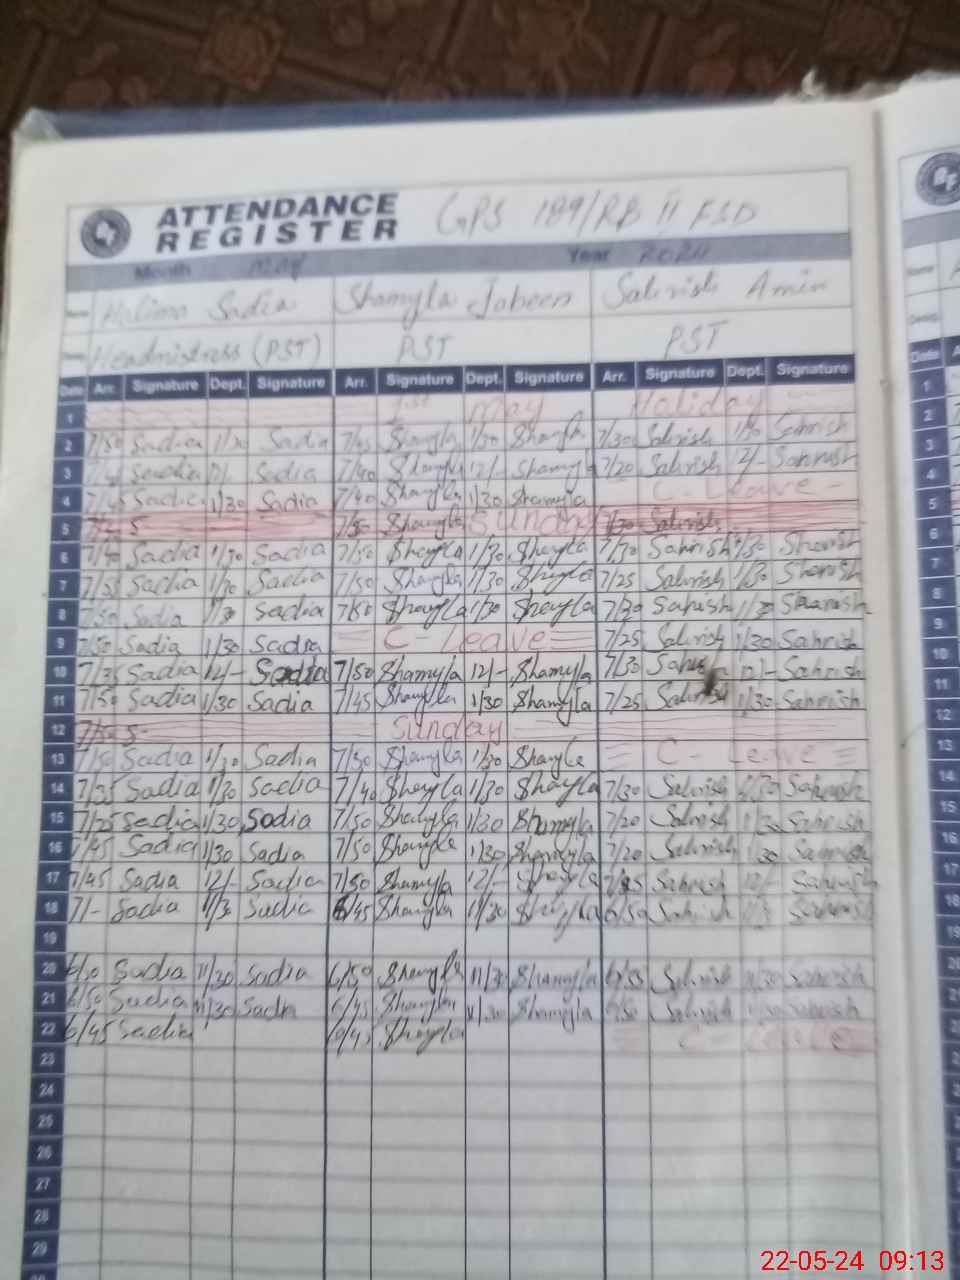 ATTENDANCE REGISTER GPS 189/RB II FSD
Month May Year 2024
Halima Sadia Shamyla Jabeen Sahrish Amin
Headmistress (PST) PST PST
Date Arr. Signature Dept. Signature Arr. Signature Dept. Signature Arr. Signature Dept. Signature
1 1st May Holiday
2 7/50 Sadia 1/30 Sadia 7/45 Shamyla 1/30 Shamyla 7/30 Sahrish 1/30 Sahrish
3 Sadia 12/- Sadia 7/40 Shamyla 12/- Shamyla 7/20 Sahrish 12/- Sahrish
4 7/45 Sadia 1/30 Sadia 7/40 Shamyla 1/30 Shamyla C - Leave -
5 S 7/50 Shamyla Sunday 7/30 Sahrish
6 7/40 Sadia 1/30 Sadia 7/50 Shayla 1/30 Shayla 7/30 Sahrish 1/30 Sharish
7 7/55 Sadia 1/30 Sadia 7/50 Shayla 1/30 Shayla 7/25 Sahrish 1/30 Sharish
8 7/50 Sadia 1/30 Sadia 7/50 Shayla 1/30 Shayla 7/30 Sahrish 1/30 Saahrish
9 7/50 Sadia 1/30 Sadia C - Leave 7/25 Sahrish 1/30 Sahrish
10 7/35 Sadia 12/- Sadia 7/50 Shamyla 12/- Shamyla 7/30 Sahrish 12/- Sahrish
11 7/50 Sadia 1/30 Sadia 7/45 Shamyla 1/30 Shamyla 7/25 Sahrish 1/30 Sahrish
12 S Sunday
13 7/50 Sadia 1/30 Sadia 7/50 Shamyla 1/30 Shayla C - Leave
14 7/35 Sadia 1/30 Sadia 7/40 Shayla 1/30 Shayla 7/30 Sahrish 1/30 Sahrish
15 7/25 Sadia 1/30 Sadia 7/50 Shamyla 1/30 Shamyla 7/20 Sahrish 1/30 Sahrish
16 7/45 Sadia 1/30 Sadia 7/50 Shamyla 1/30 Shamyla 7/20 Sahrish 1/30 Sahrish
17 7/45 Sadia 12/- Sadia 7/50 Shamyla 12/- Shayla 7/25 Sahrish 12/- Sahrish
18 7/- Sadia 11/30 Sadia 6/45 Shamyla 11/30 Shayla 6/50 Sahrish Sahrish
19
20 6/50 Sadia 11/30 Sadia 6/50 Shamyla 11/30 Shamyla 6/55 Sahrish 11/30 Sahrish
21 6/50 Sadia 11/30 Sadia 6/45 Shamyla 11/30 Shamyla 6/50 Sahrish 11/30 Sahrish
22 6/45 Sadia 6/45 Shayla C - Leave
23
24
25
26
27
28
29
Date
1
2
3
4
5
6
7
8
9
10
11
12
13
14
15
16
17
18
22-05-24 09:13